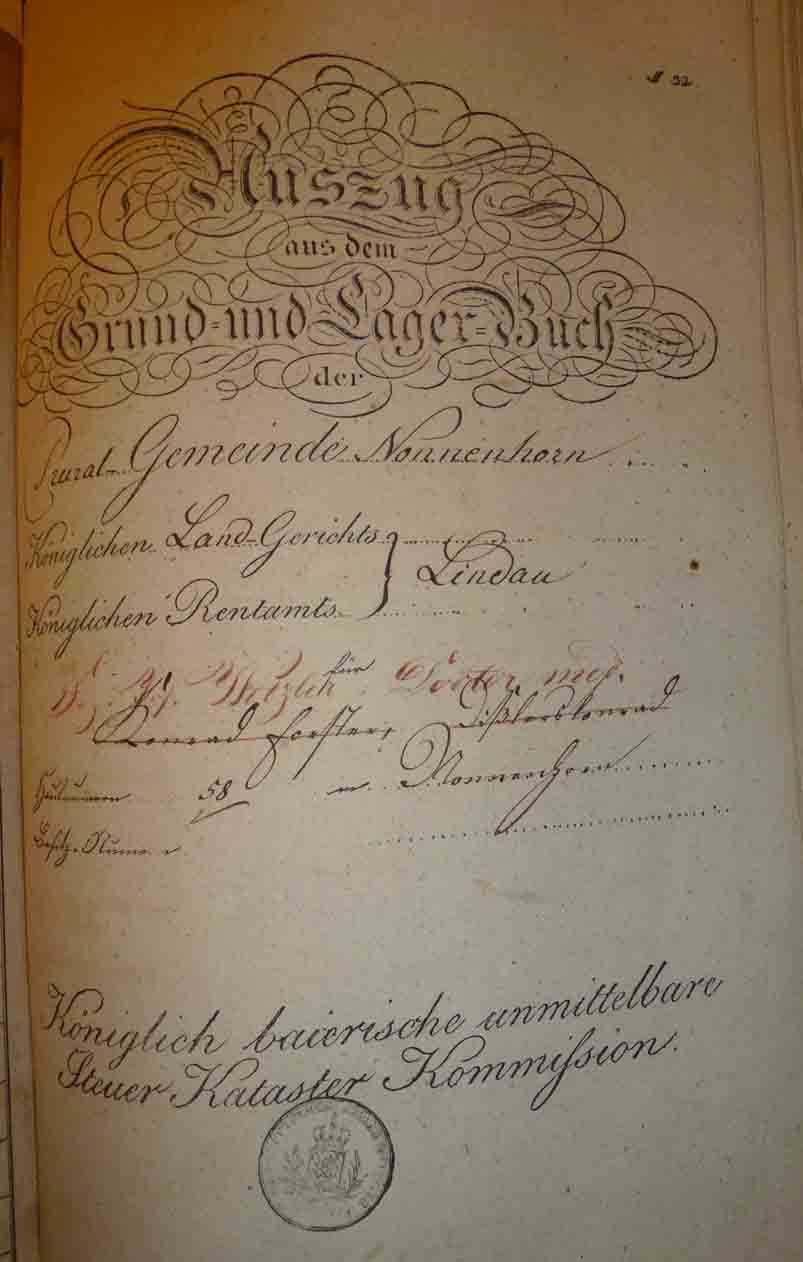 № 32
Auszug
aus dem
Grund- und Lager-Buch
der
Rural-Gemeinde Nonnenhorn
Königlichen Land-Gerichts
Lindau
Königlichen Rentamts
für
Doctor med.
Konrad Forster,
58 Nonnenhorn
Königlich baierische unmittelbare
Steuer Kataster Kommißion.